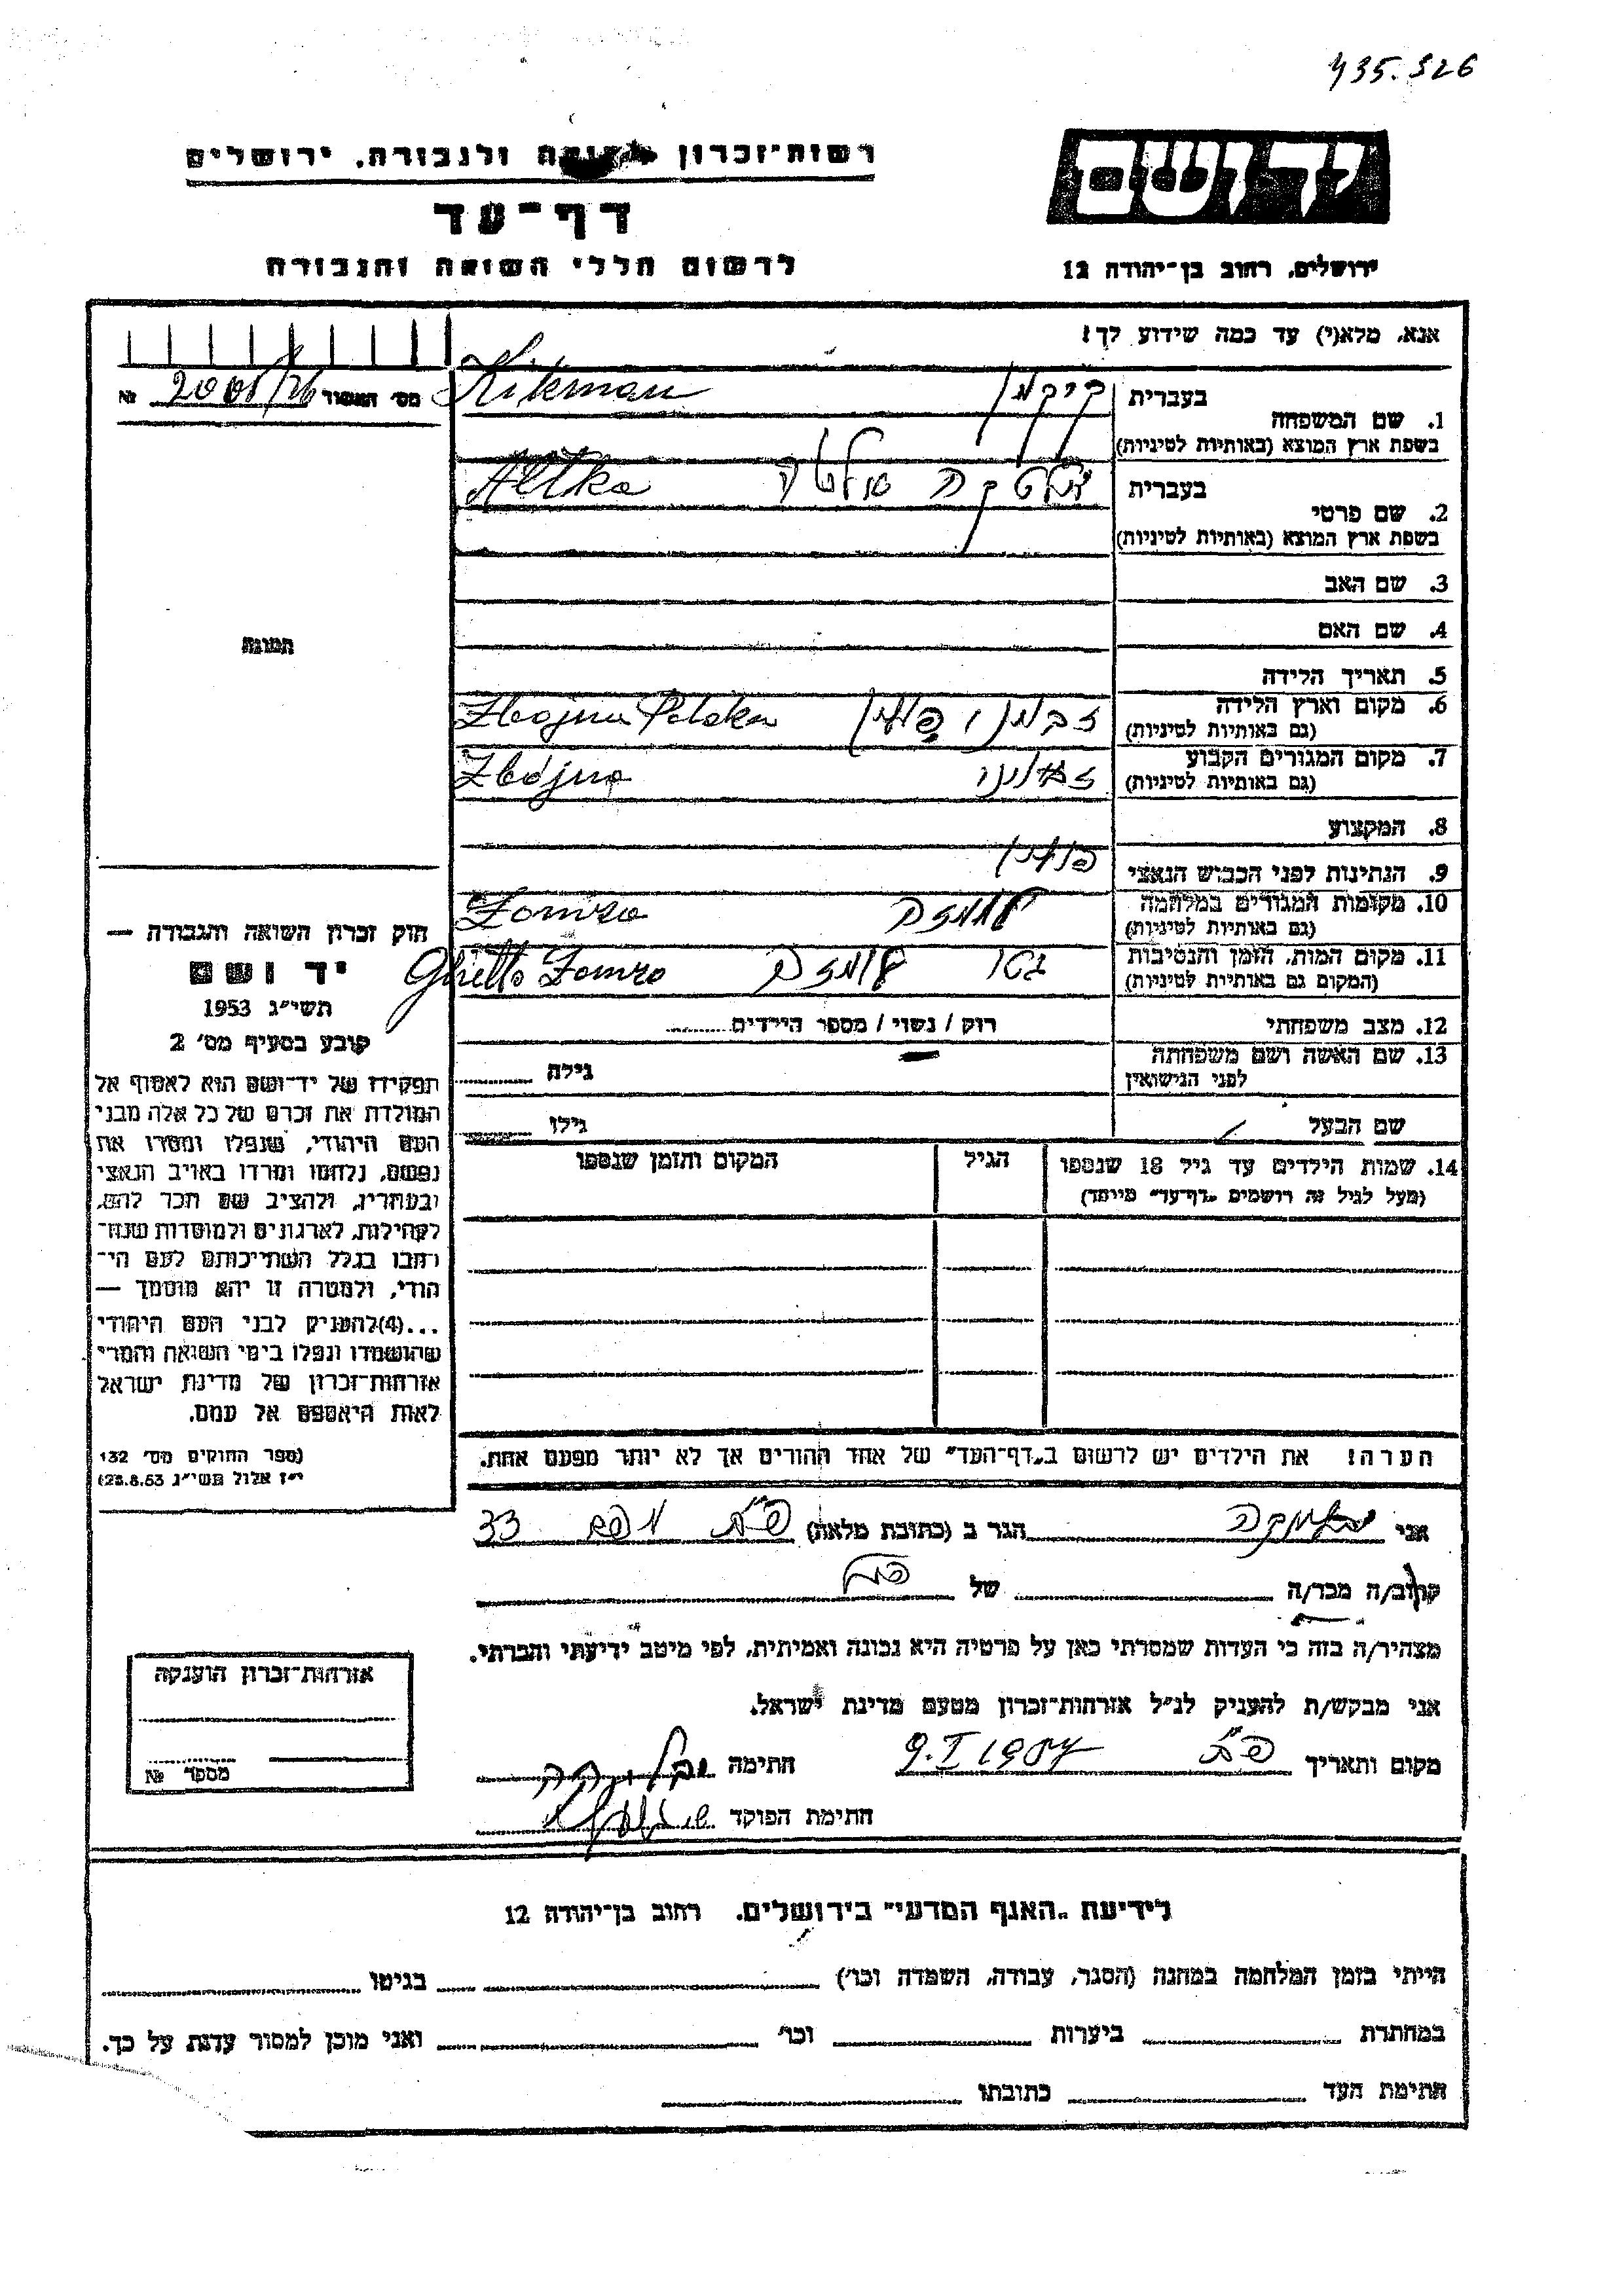 435.326
רשות-זכרון ולגבורה, ירושלים
דף-עד
לרשום חללי השואה והגבורה
ירושלים, רחוב בן-יהודה 12
אנא, מלא(י) עד כמה שידוע לך!
מס' האסור №
1. שם המשפחה
בעברית קיקמן Kikman
בשפת ארץ המוצא (באותיות לטיניות)
2. שם פרטי
בעברית Altka
בשפת ארץ המוצא (באותיות לטיניות)
3. שם האב
4. שם האם
5. תאריך הלידה
6. מקום וארץ הלידה
(גם באותיות לטיניות) Zbojna Polska
7. מקום המגורים הקבוע
(גם באותיות לטיניות) Zbójna
8. המקצוע
9. הנתינות לפני הכבוש הנאצי פולין
10. מקומות המגורים במלחמה
(גם באותיות לטיניות) Łomża
11. מקום המות, הזמן והנסיבות
(המקום גם באותיות לטיניות) גטו Ghetto Łomża
12. מצב משפחתי רוק / נשוי / מספר הילדים
13. שם האשה ושם משפחתה גילה
לפני הנישואין
שם הבעל גילו
14. שמות הילדים עד גיל 18 שנספו הגיל המקום והזמן שנספו
(מעל לגיל זה רושמים „דף-עד" מיוחד)
הערה! את הילדים יש לרשום ב„דף-העד" של אחד ההורים אך לא יותר מפעם אחת.
תמונה
חוק זכרון השואה והגבורה —
יד ושם
תשי"ג 1953
קובע בסעיף מס' 2
תפקידו של יד-ושם הוא לאסוף אל
המולדת את זכרם של כל אלה מבני
העם היהודי, שנפלו ומסרו את
נפשם, נלחמו ומרדו באויב הנאצי
ובעוזריו, ולהציב שם וזכר להם,
לקהילות, לארגונים ולמוסדות שנח-
רבו בגלל השתייכותם לעם הי-
הודי, ולמטרה זו יהא מוסמך —
...(4)להעניק לבני העם היהודי
שהושמדו ונפלו בימי השואה והמרי
אזרחות-זכרון של מדינת ישראל
לאות היאספם אל עמם.
(ספר החוקים מס' 132
י"ז אלול תשי"ג 28.8.53)
אני הגר ב (כתובת מלאה) 33
קרוב/ה מכר/ה של
מצהיר/ה בזה כי העדות שמסרתי כאן על פרטיה היא נכונה ואמיתית, לפי מיטב ידיעתי והכרתי.
אני מבקש/ת להעניק לנ"ל אזרחות-זכרון מטעם מדינת ישראל.
מקום ותאריך 9.I 1957 חתימה
חתימת הפוקד
אזרחות-זכרון הוענקה
מספר №
לידיעת „האגף המדעי" בירושלים, רחוב בן-יהודה 12
הייתי בזמן המלחמה במחנה (הסגר, עבודה, השמדה וכו') בגיטו
במחתרת ביערות וכו' ואני מוכן למסור עדות על כך.
חתימת העד כתובתו